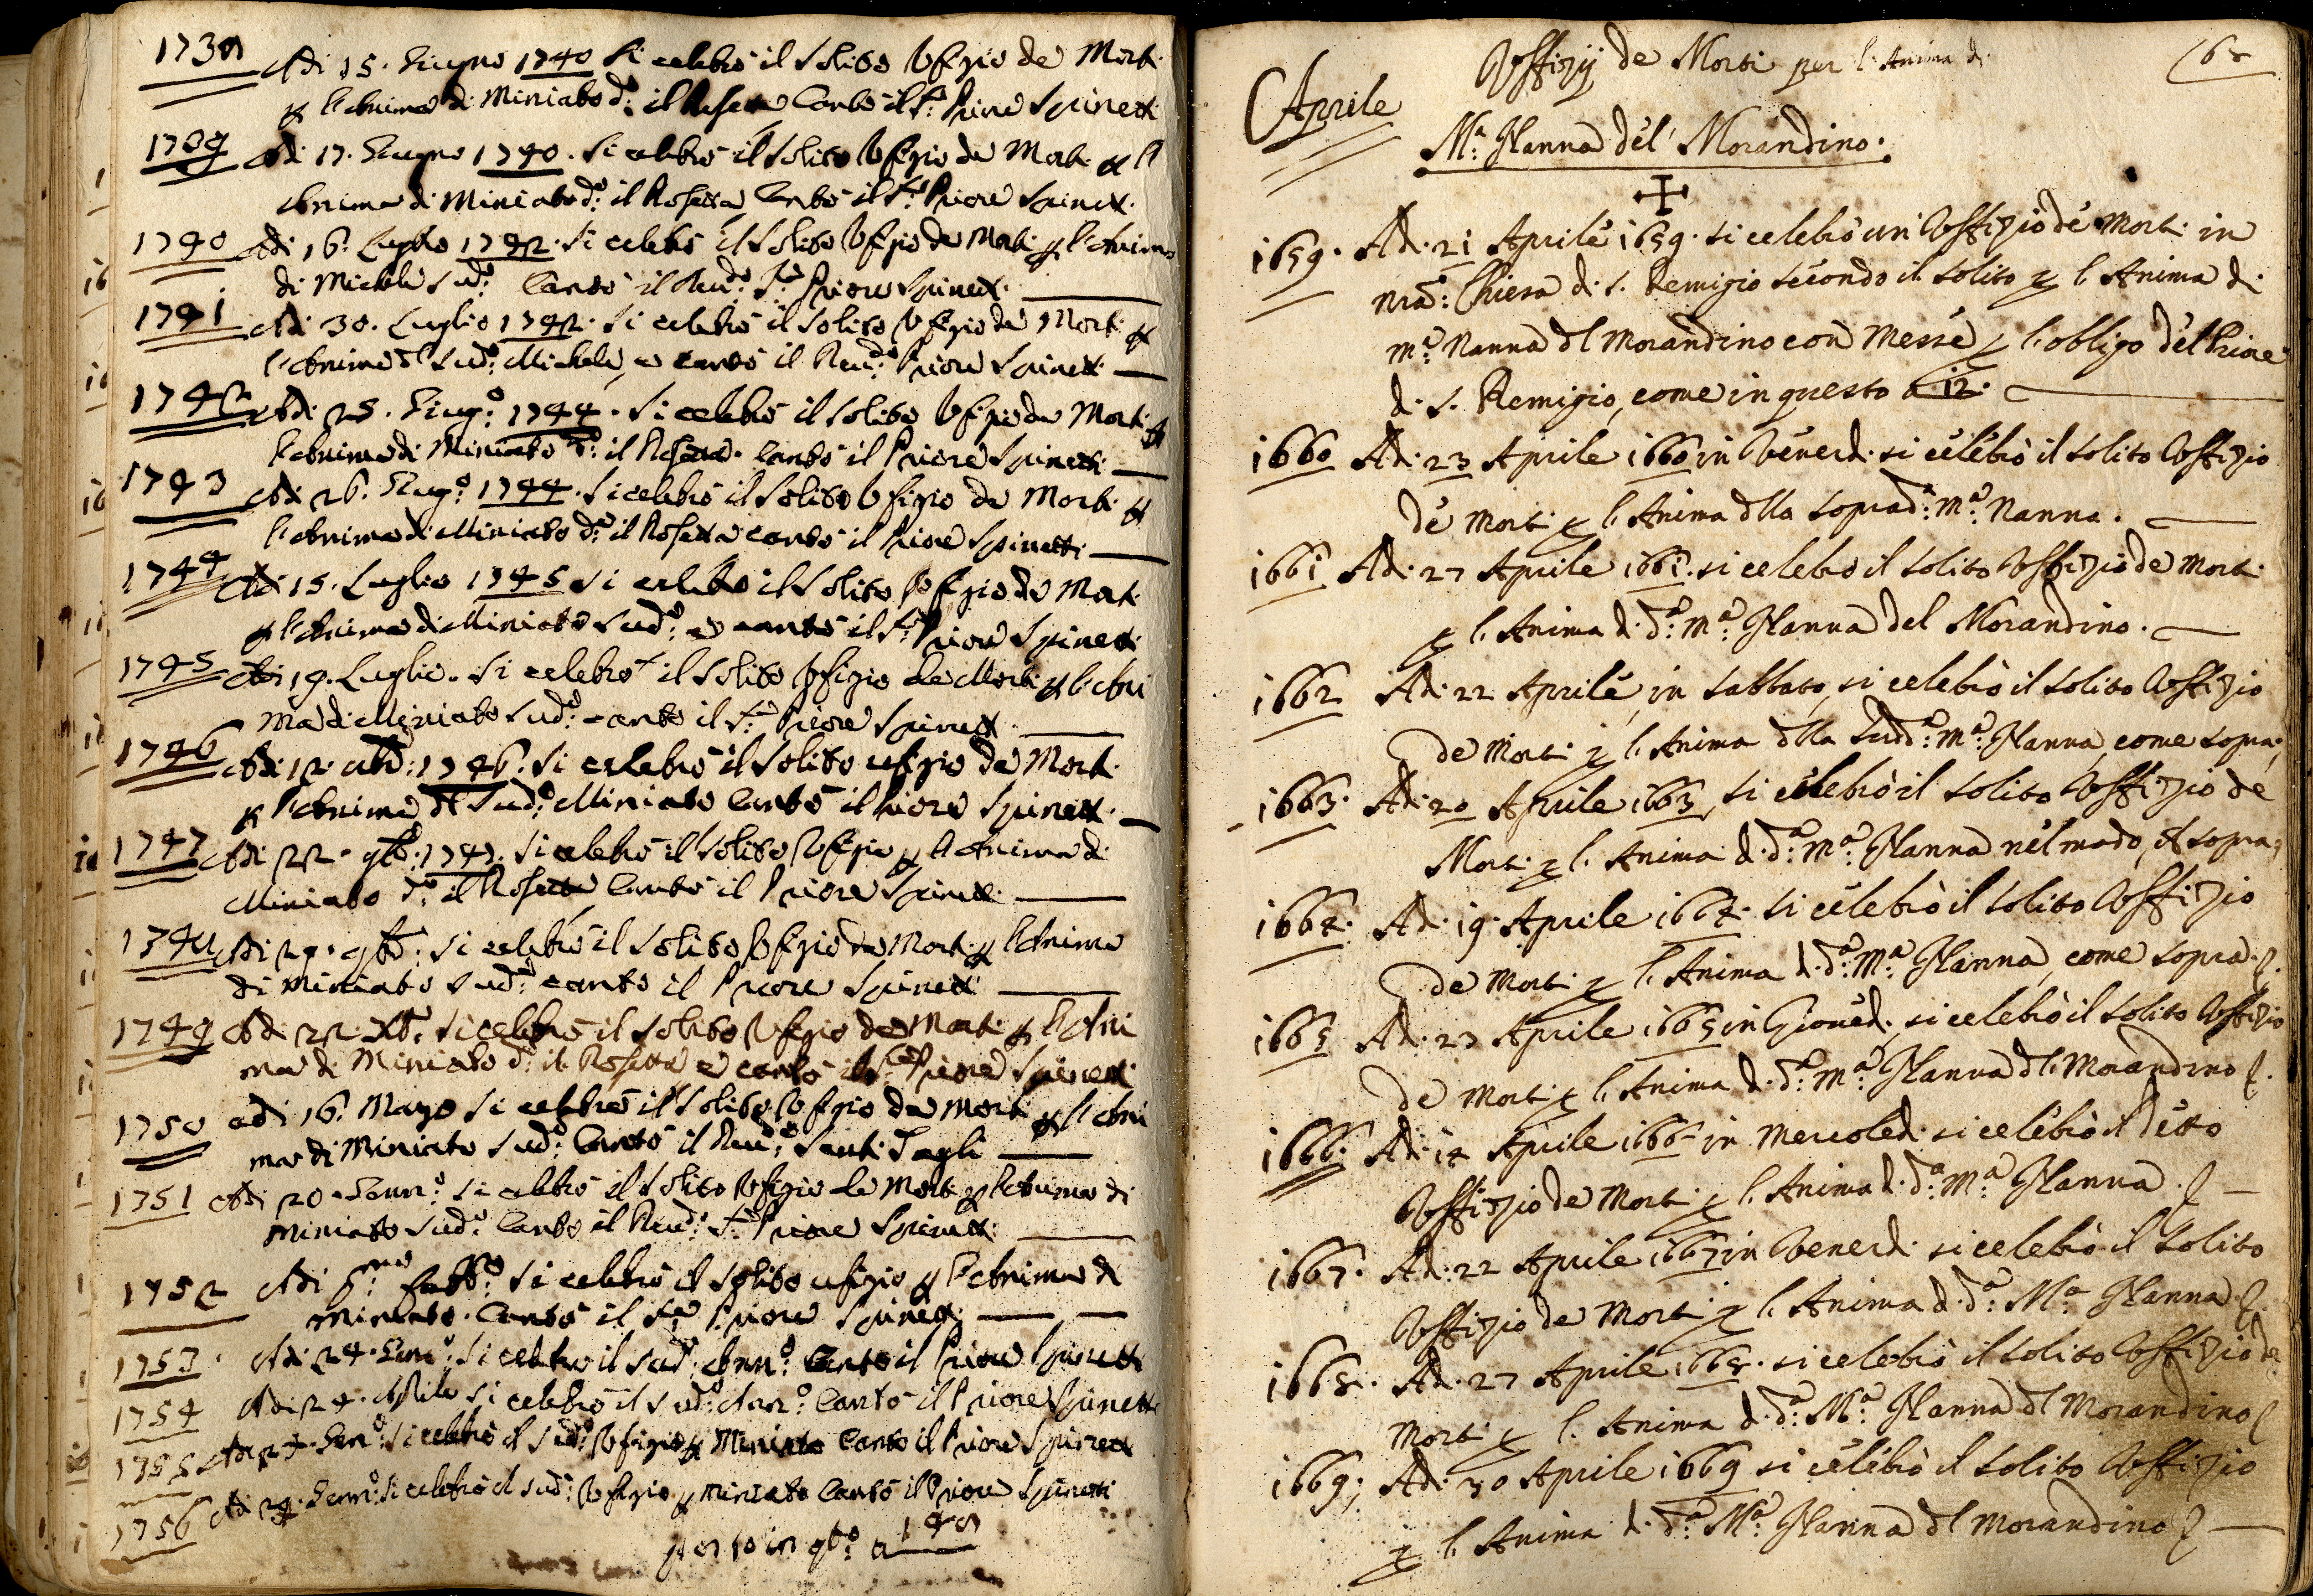 Adi 15. Giugno 1740 si celebrò il Solito Ufizio de Morti
p l'Anima di Miniato d.º il Rosetta Cantò il S.r Priore Spinetti
1739 Adi 17. Giugno 1740. si celebrò il Solito Ufizio de Morti p l'
Anima di Miniato d.º il Rosetta, Cantò il S.r Priore Spinetti.
1740 Adi 16. Luglio 1742. Si celebrò il Solito Ufizio de Morti p l'Anima
di Michele Sud.º Cantò il Reu.do S.r Priore Spinetti.
1741 Adi 30. Luglio 1742. Si celebrò il Solito Ufizio de Morti p
l'Anima del Sud.º Michele, e cantò il Reu.do Priore Spinetti
1742 Adi 25. Giug.º 1744. Si celebrò il Solito Ufizio de Morti p
l'Anima di Miniato d.º il Rosetta. Cantò il Priore Spinetti
1743 Adi 26. Giug.º 1744. Si celebrò il Solito Ufizio de Morti p
l'Anima di Miniato d.º il Rosetta cantò il Priore Spinetti
1744 Adi 15. Luglio 1745 Si celebrò il Solito Ufizio de Morti
p l'Anima di Miniato Sud.º e cantò il S.r Priore Spinetti
1745 Adi 19. Luglio. Si celebrò il Solito Ufizio de Morti p l'Ani
ma di Miniato Sud.º cantò il S.r Priore Spinetti
1746 Adi 12. 1746. Si celebrò il Solito ufizio de Morti
p l'Anima del Sud.º Miniato Cantò il Priore Spinetti.
1747 Adi 22. 9bre: 1747. Si celebrò il Solito Ufizio p l'Anima di
Miniato d.º il Rosetta Cantò il Priore Spinetti
Adi 9bre: Si celebrò il Solito Ufizio de Morti p l'Anima
di Miniato Sud.º cantò il Priore Spinetti
1749 Adi 22. Xbre. Si celebrò il Solito Ufizio de Morti p l'Ani
ma di Miniato d.º il Rosetta e cantò il S.r Priore Spinetti
1750 adi 16. Marzo Si celebrò il Solito Ufizio de Morti p l'Ani
ma di Miniato Sud.º Cantò il Reu.do Santi
1751 Adi 20. Genn.º Si celebrò il Solito Ufizio de Morti p l'Anima di
Miniato Sud.º Cantò il Reu.do S.r Priore Spinetti
1752 Adi Febb.º Si celebrò il Solito ufizio p l'Anima di
Miniato. Cantò il S.r Priore Spinetti
1753. Adi 24. Genn.º Si celebrò il Sud.º Ann.º Cantò il Priore Spinetti
1754 Adi 24. Aprile si celebrò il Sud.º Ann.º Cantò il Priore Spinetti
1755 Adi Gen.º Si celebrò il Sud.º Ufizio p Miniato Cantò il Priore Spinetti
1756 Adi 24. Genn.º Si celebrò il Sud.º Ufizio p Miniato Cantò il Priore Spinetti
Aprile
Uffizij de Morti per l'Anima di
M.a Nanna del Morandino.
1659. Adi 21 Aprile 1659. si celebrò un Uffizio de Morti in
nra: Chiesa di S. Remigio secondo il solito p l'Anima di
m.a Nanna dl Morandino con Messe p l'obligo del Priore
di S. Remigio, come in questo a 12.
1660 Adi 23 Aprile 1660 in Venerdi si celebrò il solito Uffizio
de Morti p l'Anima dlla soprad.a m.a Nanna.
1661 Adi 27 Aprile 1661. si celebrò il solito Uffizio de Morti
p l'Anima di d.a m.a Nanna del Morandino.
1662 Adi 22 Aprile, in sabbato, si celebrò il solito Uffizio
de Morti p l'Anima dlla Sudd.a m.a Nanna, come sopra,
1663. Adi 20 Aprile 1663, si celebrò il solito Uffizio de
Morti p l'Anima di d.a m.a Nanna nel modo, di sopra,
1664. Adi 19 Aprile 1664. si celebrò il solito Uffizio
de Morti p l'Anima di d.a M.a Nanna, come sopra.
1665 Adi 23 Aprile 1665 in Giouedi, si celebrò il solito Uffizio
de Morti p l'Anima di d.a m.a Nanna dl Morandino.
1666. Adi 14 Aprile 1666 in Mercoledi si celebrò il detto
Uffizio de Morti p l'Anima di d.a M.a Nanna.
1667. Adi 22 Aprile 1667 in Venerdi si celebrò il solito
Uffizio de Morti p l'Anima di d.a M.a Nanna
1668. Adi 27 Aprile 1668. si celebrò il solito Uffizio de
Morti p l'Anima di d.a M.a Nanna dl Morandino
1669; Adi 30 Aprile 1669 si celebrò il solito Uffizio
p l'Anima di d.a M.a Nanna dl Morandino